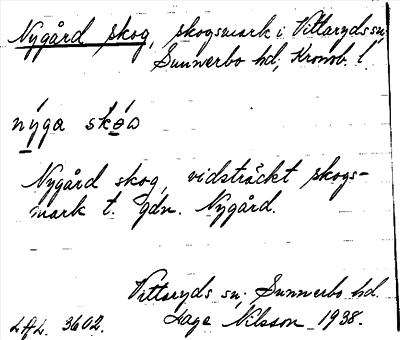 Nygård skog, skogsmark i Vittaryds sn,
Sunnerbo hd, Kronob. l.
nýga skó̱ɷ
Nygård skog, vidsträckt skogs-
mark t. gdn. Nygård.
Vittaryds sn, Sunnerbo hd.
LAL. 3602. Lage Nilsson 1938.